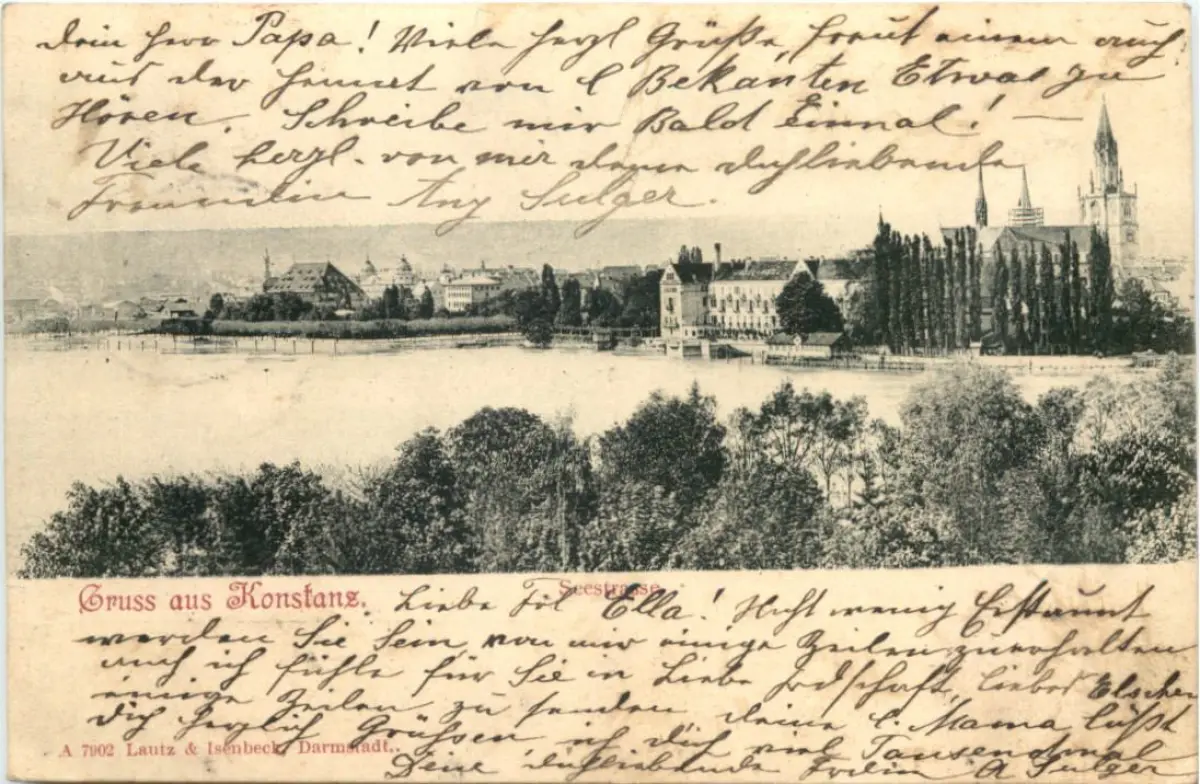 Dein Herr Papa! Viele herzl Grüße, freut einem auch
aus der von l Bekanten Etwas zu
Hören. Schreibe mir Bald Einmal! —
Viele herzl. von mir deine dichliebende
Freundin Any Sulger.
Gruss aus Konstanz.
Seestrasse
Liebe Frl Ella! Nicht wenig Erstaunt
werden Sie Sein, von mir einige Zeilen zuerhalten
auch ich fühle für Sie in Liebe, liebes Elschen
einige Zeilen zu senden, deine l. Mama läßt
dich herzlich Grüßen ich dich viel Tausendmal
Deine dichliebende A Sulger
A 7902 Lautz & Isenbeck, Darmstadt.